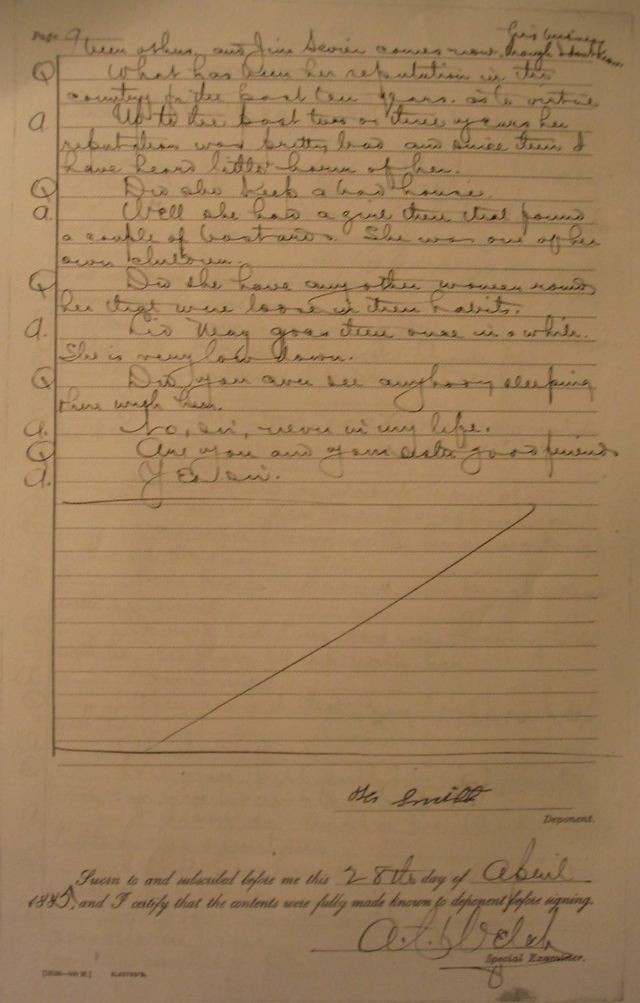 Page 9
his business
been others, and Jim Sevier comes now, though I dont know
Q What has been her reputation in the
country for the past ten years. as to virtue
a. Up to the past two or three years her
reputation was pretty bad and since then I
have heard little harm of her.
Q Did she keep a bad house.
a. Well she had a girl there that found
a couple of bastards. She was one of her
own children.
Q Did she have any other women round
her that were loose in their habits.
a. May goes there once in a while.
She is very low down.
Q Did you ever see anybody sleeping
there with her.
a. No, sir, never in my life.
Q Are you and your sister good friends
a. Yes sir.
Smith
Deponent.
Sworn to and subscribed before me this 28th day of April
1885, and I certify that the contents were fully made known to deponent before signing.
Welch
Special Examiner.